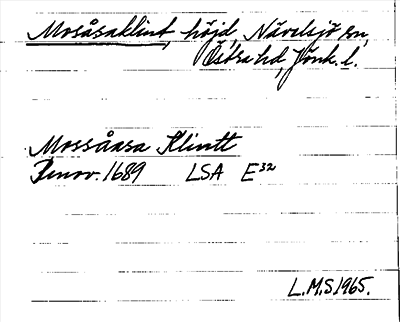 Mosåsaklint, höjd, Nävelsjö sn,
Östra hd, Jönk. l.
Mossåasa Klintt
Renov. 1689 LSA E³²
L.M.S. 1965.